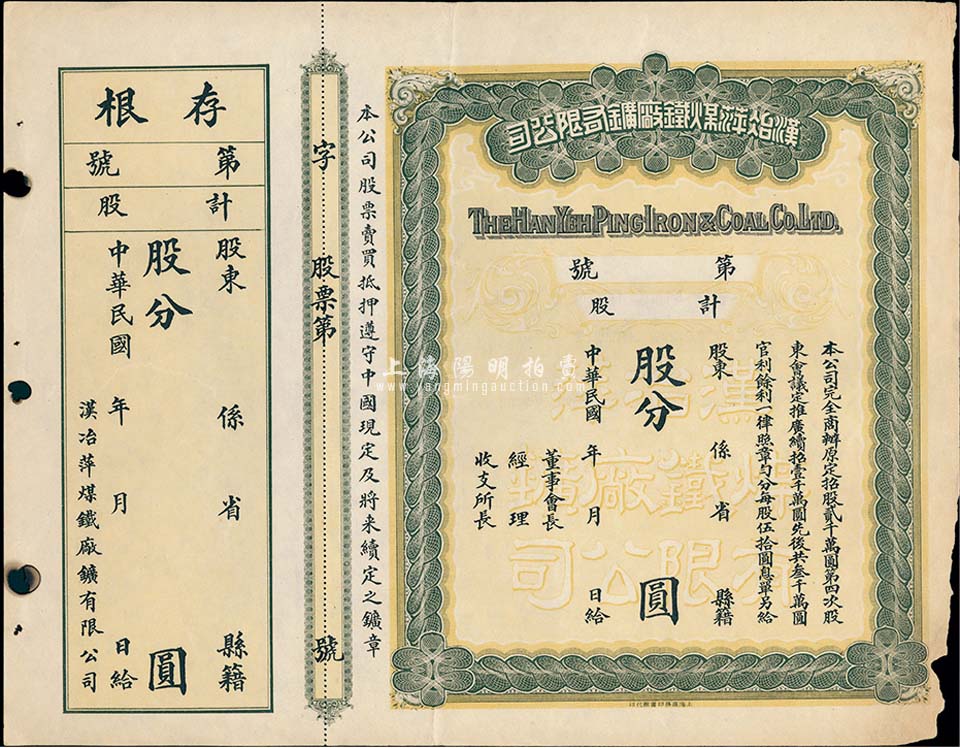 漢冶萍煤鐵廠鑛有限公司
THE HAN YEH PING IRON & COAL CO. LTD.
第 號
計 股
本公司完全商辦原定招股貳千萬圓第四次股
東會議定推廣續招壹千萬圓先後共叁千萬圓
官利餘利一律照章勻分每股伍拾圓息單另給
股東 係 省 縣籍
股分 圓
中華民國 年 月 日給
董事會長
經理
收支所長
漢冶萍
煤鐵廠鑛
有限公司
本公司股票賣買抵押遵守中國現定及將来續定之鑛章
字 股票第 號
存根
第 號
計 股
股東 係 省 縣籍
股分 圓
中華民國 年 月 日給
漢冶萍煤鐵廠鑛有限公司
上海陽明拍賣
www.yangmingauction.com